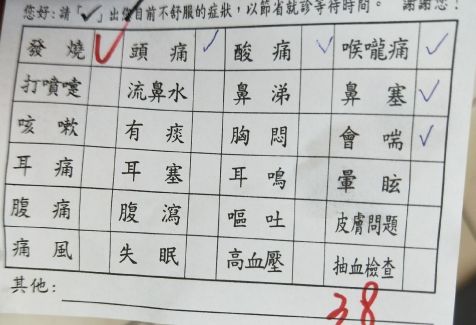 您好:請「✓」出您目前不舒服的症狀,以節省就診等待時間。 謝謝您!
發燒 ✓ 頭痛 ✓ 酸痛 ✓ 喉嚨痛 ✓
打噴嚏 流鼻水 鼻涕 鼻塞 ✓
咳嗽 有痰 胸悶 會喘 ✓
耳痛 耳塞 耳鳴 暈眩
腹痛 腹瀉 嘔吐 皮膚問題
痛風 失眠 高血壓 抽血檢查
其他:
38